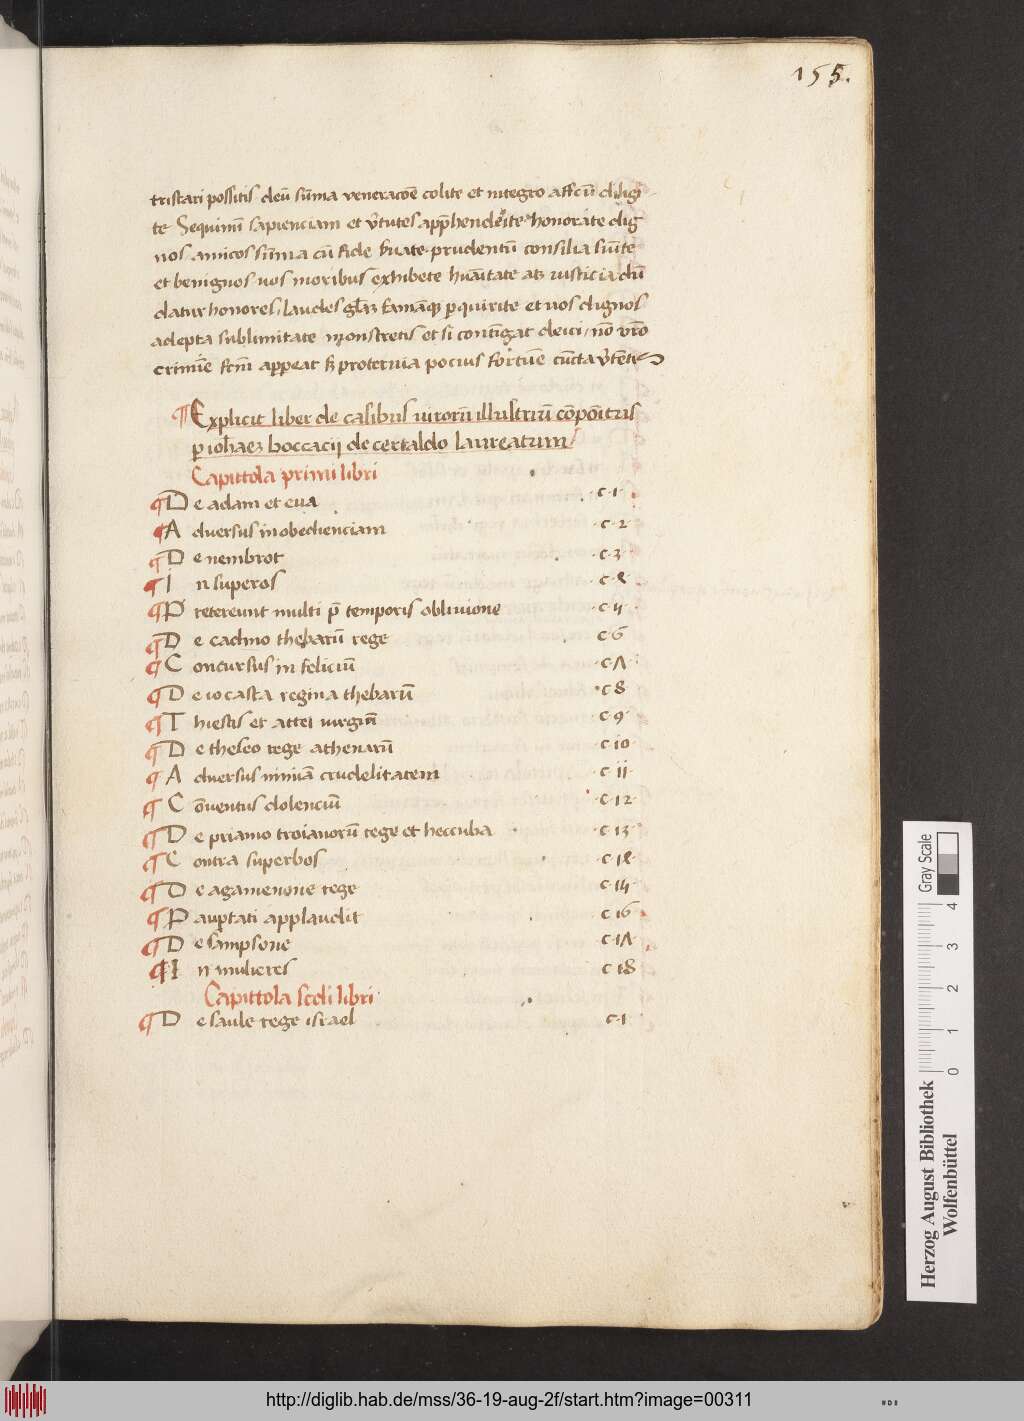 155.
tristari possitis deū sūma veneracōe colite et integro affcū dilig
te Sequimī sapienciam et v̄tutes app̄hendite honorate dig
nos amicos sūma cū fide s̄uate prudentū consilia siūte
et benignos vos moribus exhibete hūaītate atꝫ iusticia dū
datur honores, laudes gl̄aꝫ famāqꝫ ꝑquirite et uos dignos
adepta sublimitate monstretis et si contīgat deici, nō vr̄o
crimīe fcm̄ appeat sꝫ proteruia pocius fortūe cūcta v̄tētis
¶ Explicit liber de casibus uirorū illustriū cōpōitus
ꝑ ioh̄aeꝫ boccacij de certaldo laureatum
Capittola primi libri
¶ De adam et eua c·1·
¶ Aduersus inobedienciam ·c·2·
¶ De nembrot ·c·3·
¶ In superos ·c·ꝭ·
¶ Pretereunt multi p̄ temporis obliuione ·c·4·
¶ De cadmo thebarū rege c·6·
¶ Concursus in feliciū ·c·Λ·
¶ De iocasta regina thebarū ·c8·
¶ Thiestis et attei iurgiū ·c·9·
¶ De theseo rege athenarū ·c·10·
¶ Aduersus nimiā crudelitatem ·c·11·
¶ Cōuentus dolenciū ·c·12·
¶ De priamo troianorū rege et heccuba ·c·13·
¶ Contra superbos ·c·1ꝭ·
¶ De agamenone rege ·c·14·
¶ Pauꝑtati applaudit ·c·16·
¶ De sampsone ·c·1Λ·
¶ In mulieres c·18
Capittola scdi libri
¶ De saule rege israel c·1
Gray Scale
0 1 2 3 4
Herzog August Bibliothek
Wolfenbüttel
http://diglib.hab.de/mss/36-19-aug-2f/start.htm?image=00311